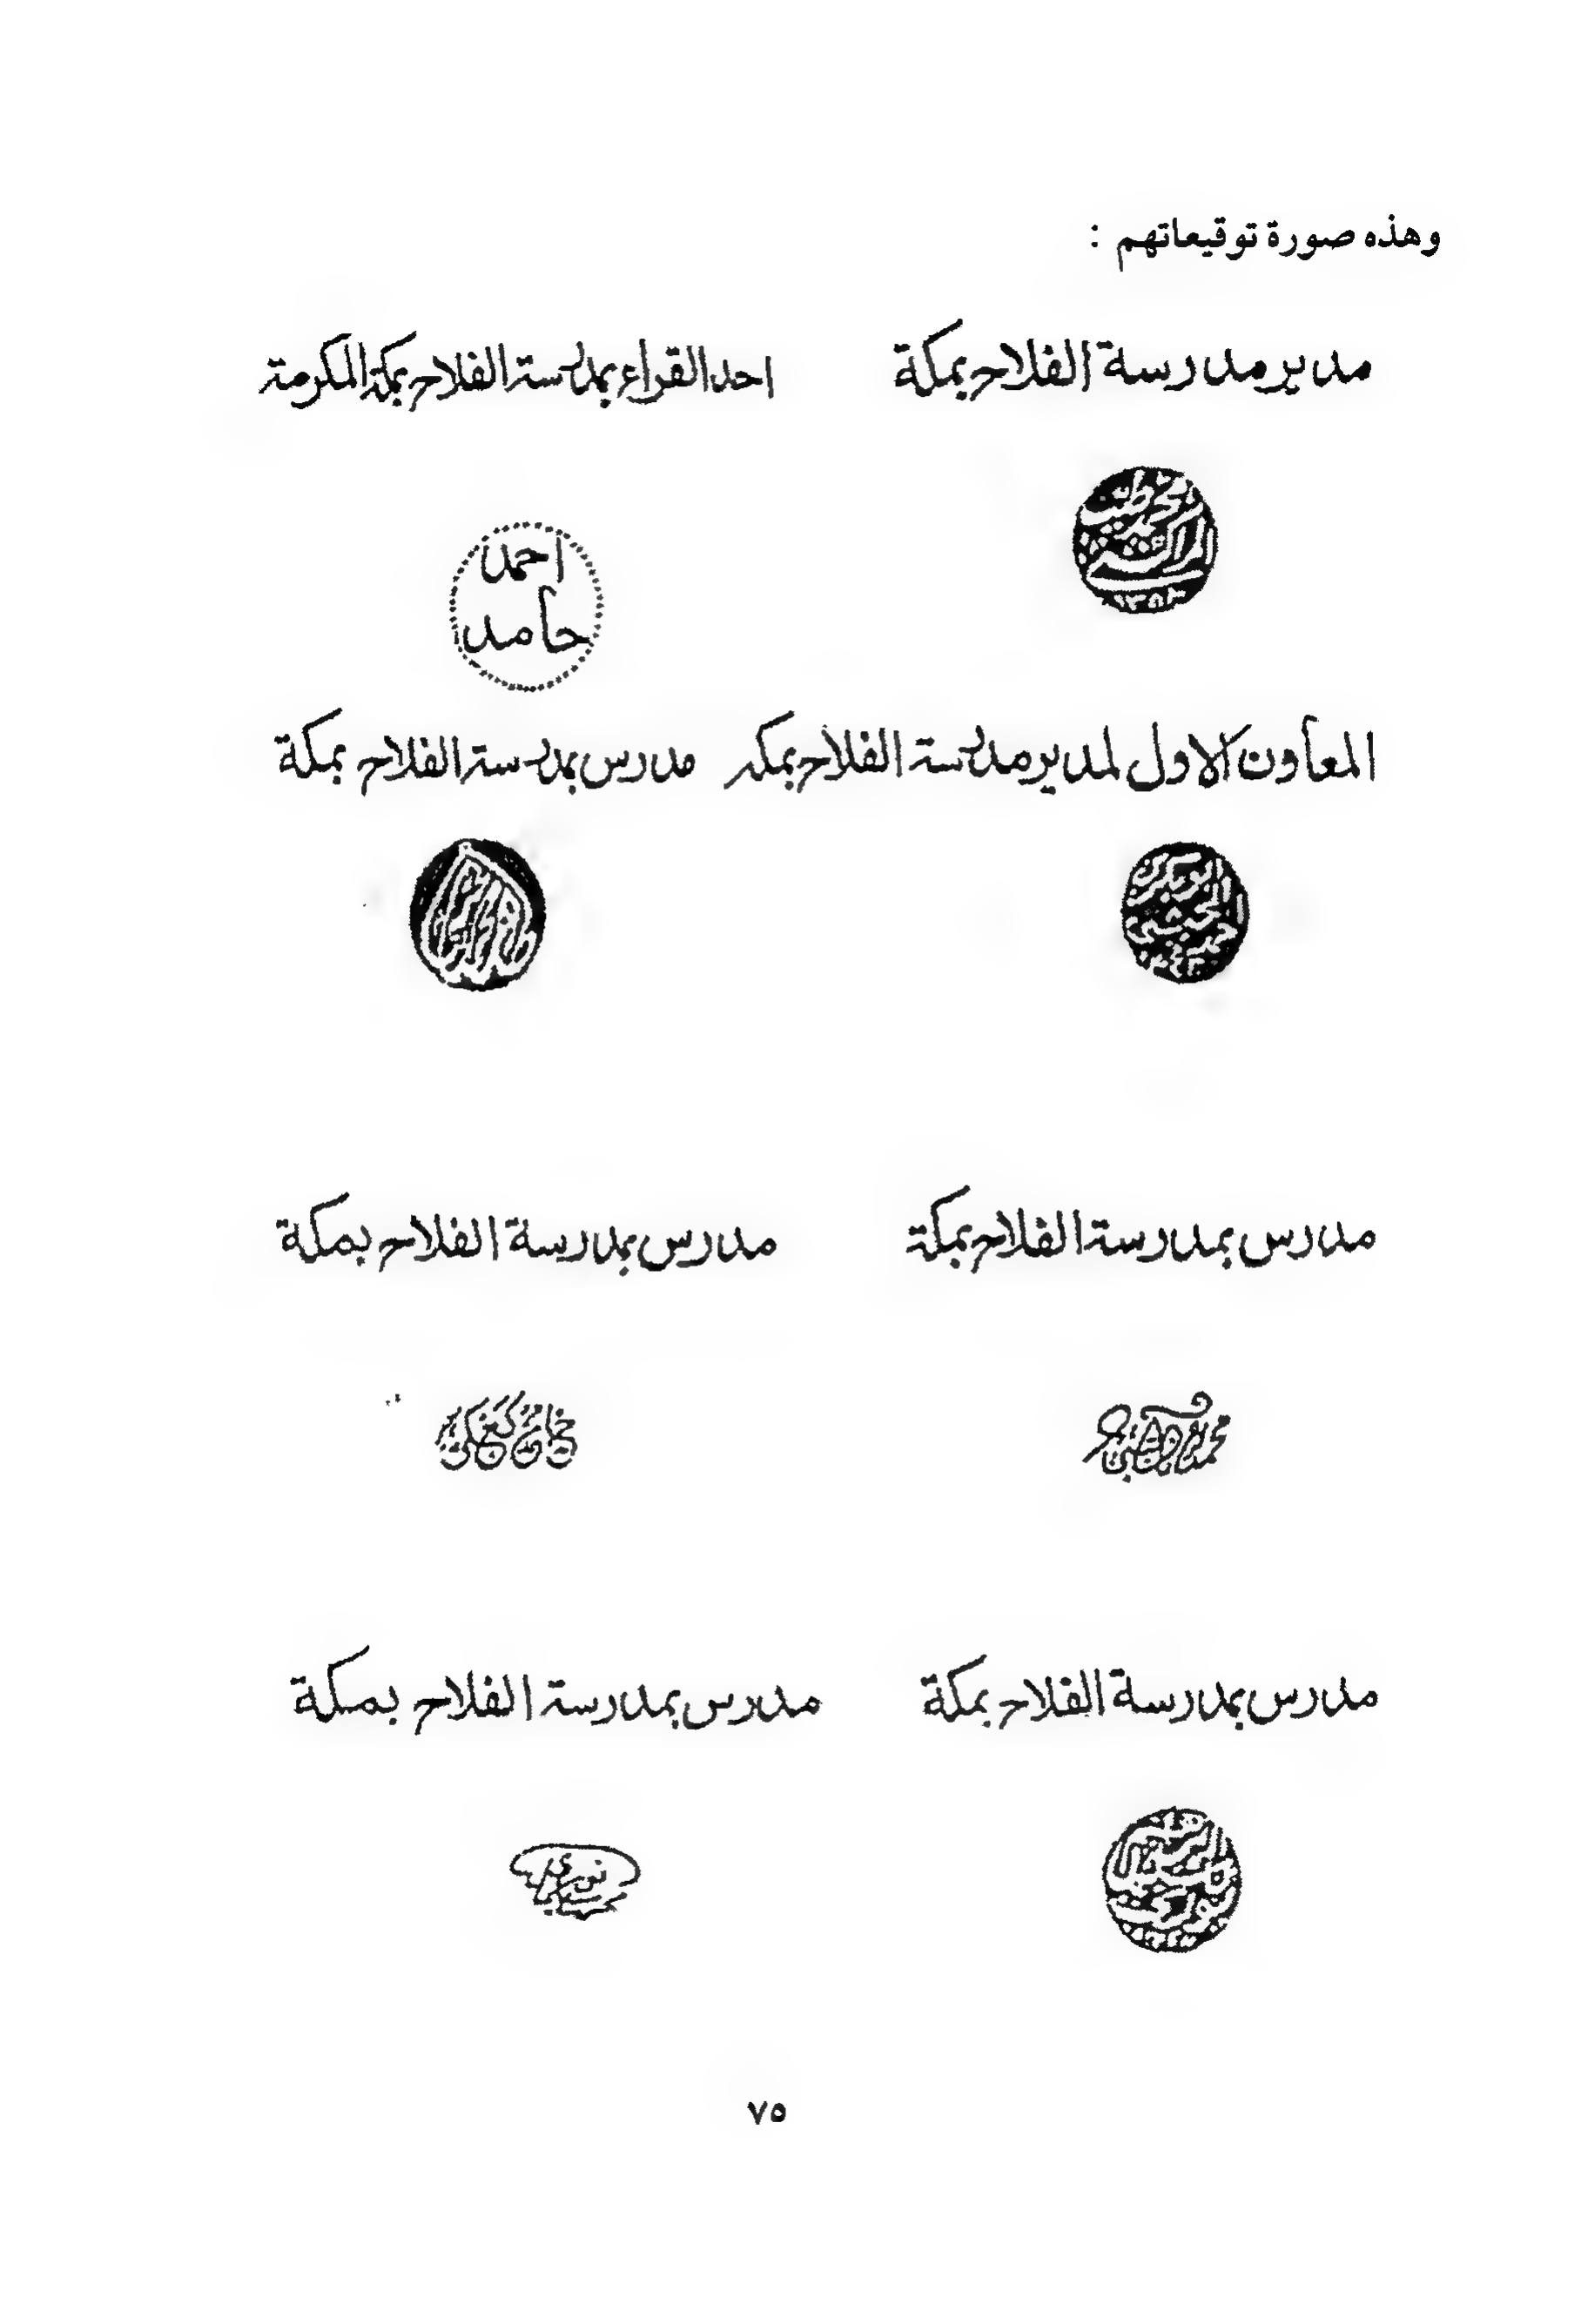 وهذه صورة توقيعاتهم :
مدير مدرسة الفلاح بمكة
احد القراء بمدرسة الفلاح بمكة المكرمة
احمد
حامد
المعاون الاول لمدير مدرسة الفلاح بمكه
مدرس بمدرسة الفلاح بمكة
مدرس بمدرسة الفلاح بمكة
مدرس بمدرسة الفلاح بمكة
مدرس بمدرسة الفلاح بمكة
مدرس بمدرسة الفلاح بمكة
٧٥